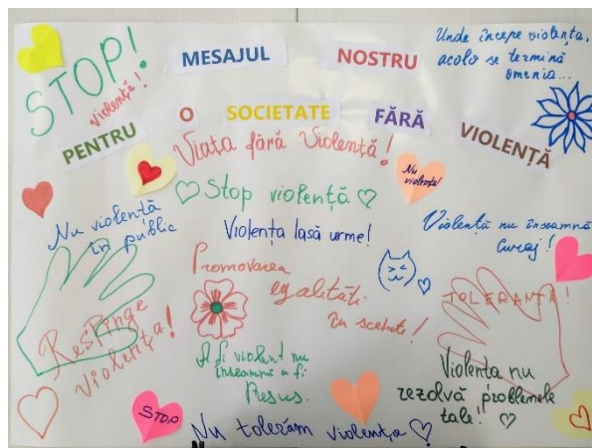 STOP!
violență!
MESAJUL NOSTRU
PENTRU O SOCIETATE FĂRĂ VIOLENȚĂ
Unde începe violența,
acolo se termină
omenia...
Viața fără Violență!
Stop violență
Nu
violență!
Nu violență
în public
Violența lasă urme!
Violență nu înseamnă
Curaj!
Promovarea
egalității
în
TOLERANȚĂ!
Respinge
violența!
A fi violent nu
înseamnă a fi
Violența nu
rezolvă problemele
tale!
STOP
Nu tolerăm violența